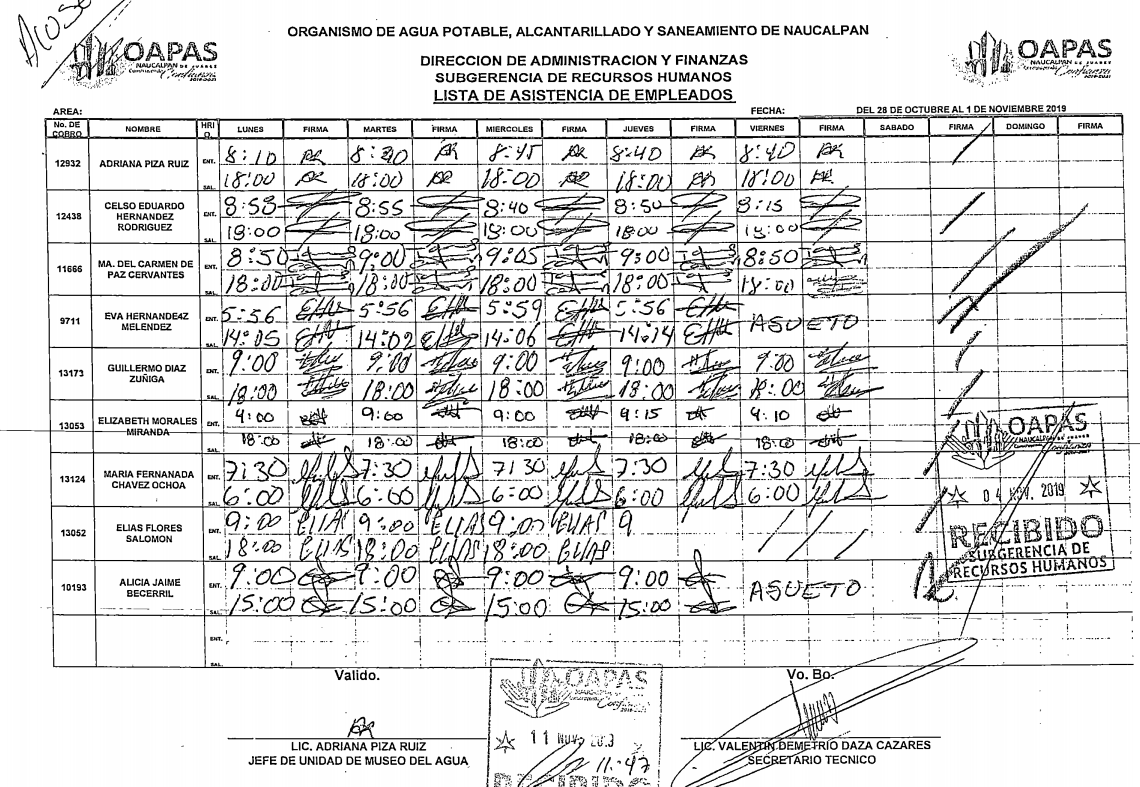 Acoso
OAPAS
NAUCALPAN DE JUÁREZ
2019-2021
ORGANISMO DE AGUA POTABLE, ALCANTARILLADO Y SANEAMIENTO DE NAUCALPAN
DIRECCION DE ADMINISTRACION Y FINANZAS
SUBGERENCIA DE RECURSOS HUMANOS
LISTA DE ASISTENCIA DE EMPLEADOS
OAPAS
NAUCALPAN DE JUÁREZ
2019-2021
AREA: FECHA: DEL 28 DE OCTUBRE AL 1 DE NOVIEMBRE 2019
No. DE COBRO NOMBRE HRIO LUNES FIRMA MARTES FIRMA MIERCOLES FIRMA JUEVES FIRMA VIERNES FIRMA SABADO FIRMA DOMINGO FIRMA
12932 ADRIANA PIZA RUIZ
ENT. 8:10 8:40 8:45 8:40 8:40
SAL. 18:00 18:00 18:00 18:00 18:00
12438 CELSO EDUARDO HERNANDEZ RODRIGUEZ
ENT. 8:58 8:55 8:40 8:50 8:15
SAL. 18:00 18:00 18:00 18:00 18:00
11666 MA. DEL CARMEN DE PAZ CERVANTES
ENT. 8:50 9:00 9:05 9:00 8:50
SAL. 18:00 18:00 18:00 18:00 18:00
9711 EVA HERNANDE4Z MELENDEZ
ENT. 5:56 5:56 5:59 5:56 ASUETO
SAL. 14:05 14:02 14:06 14:14
13173 GUILLERMO DIAZ ZUÑIGA
ENT. 9:00 9:00 9:00 9:00 9:00
SAL. 18:00 18:00 18:00 18:00 18:00
13053 ELIZABETH MORALES MIRANDA
ENT. 9:00 9:00 9:00 9:15 9:10
SAL. 18:00 18:00 18:00 18:00 18:00
13124 MARIA FERNANADA CHAVEZ OCHOA
ENT. 7:30 7:30 7:30 7:30 7:30
SAL. 6:00 6:00 6:00 6:00 6:00
13052 ELIAS FLORES SALOMON
ENT. 9:00 ELIAS 9:00 ELIAS 9:00 ELIAS 9
SAL. 18:00 ELIAS 18:00 ELIAS 18:00 ELIAS
10193 ALICIA JAIME BECERRIL
ENT. 9:00 9:00 9:00 9:00 ASUETO
SAL. 15:00 15:00 15:00 15:00
ENT.
SAL.
OAPAS
04 NOV. 2019
RECIBIDO
SUBGERENCIA DE
RECURSOS HUMANOS
Valido.
LIC. ADRIANA PIZA RUIZ
JEFE DE UNIDAD DE MUSEO DEL AGUA
OAPAS
11 NOV.
11:47
RECIBIDO
Vo. Bo.
LIC. VALENTIN DEMETRIO DAZA CAZARES
SECRETARIO TECNICO